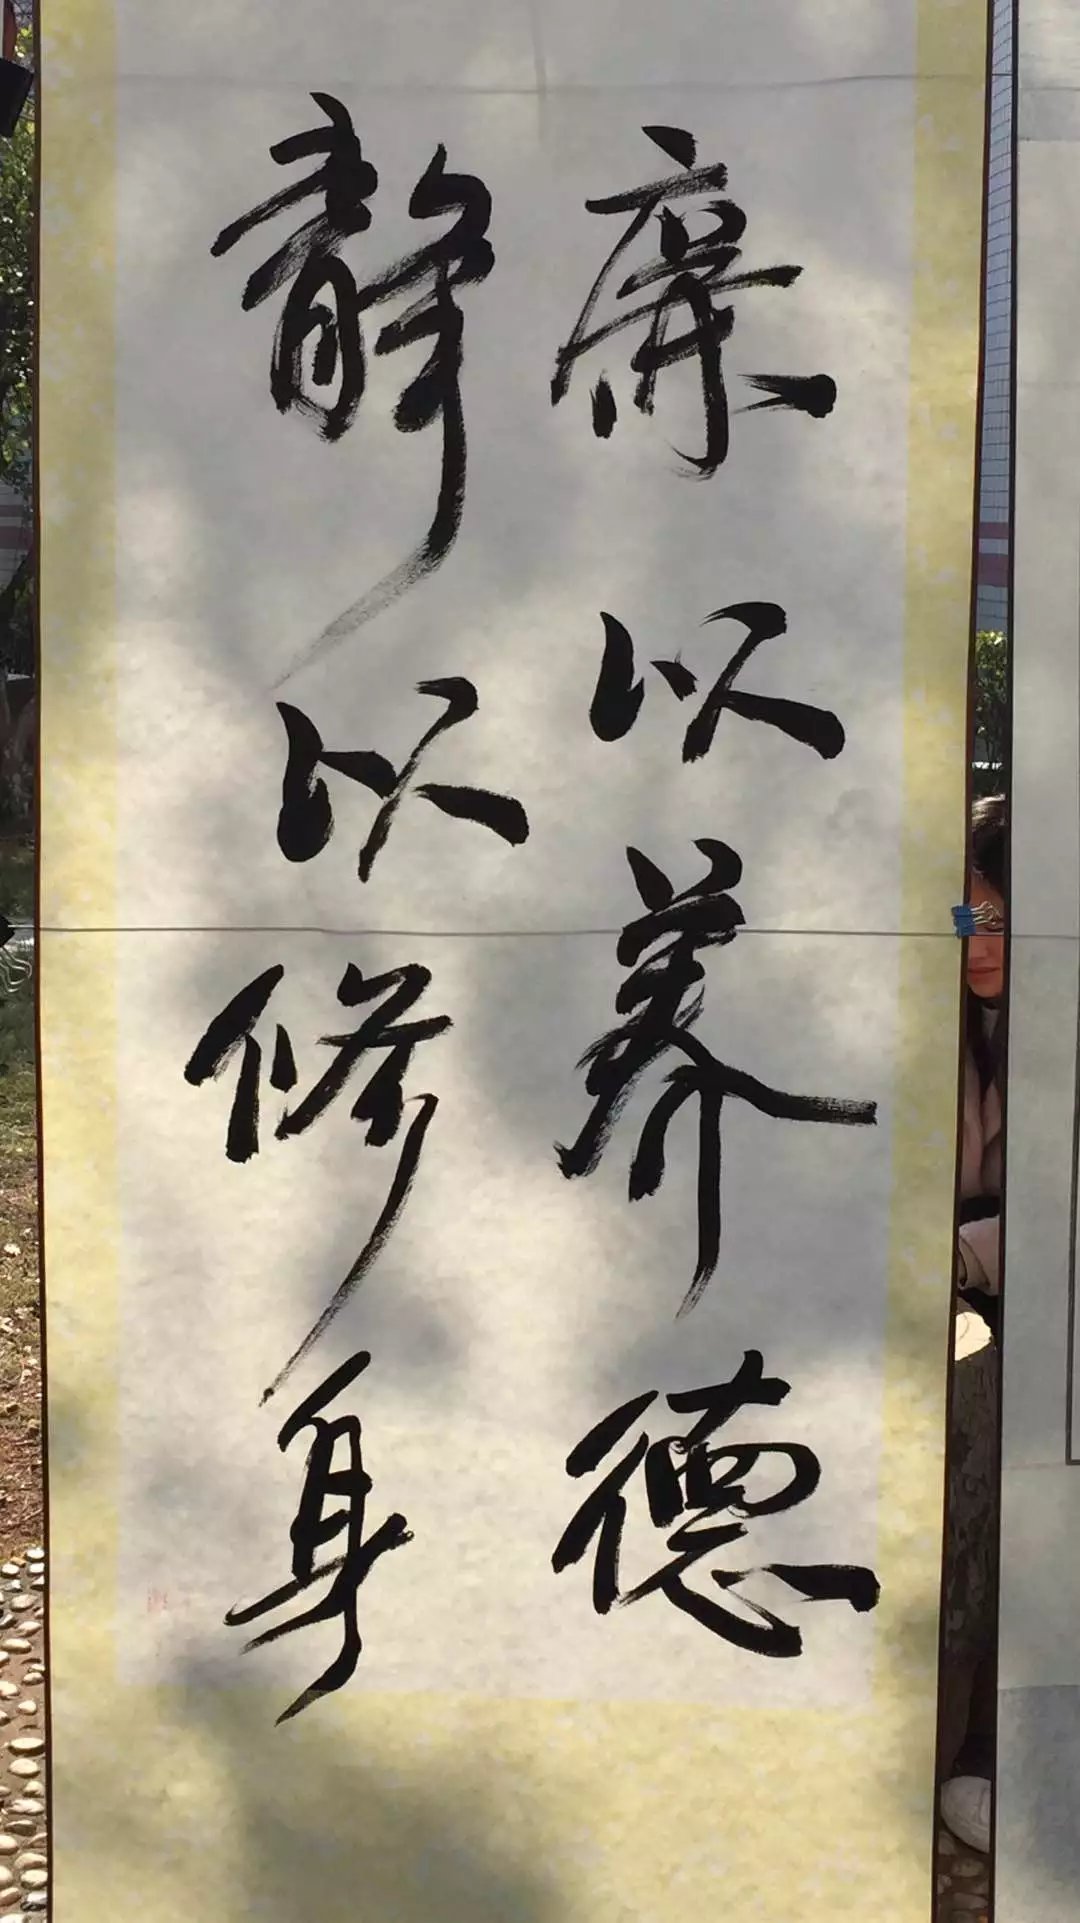 廉以养德
静以修身